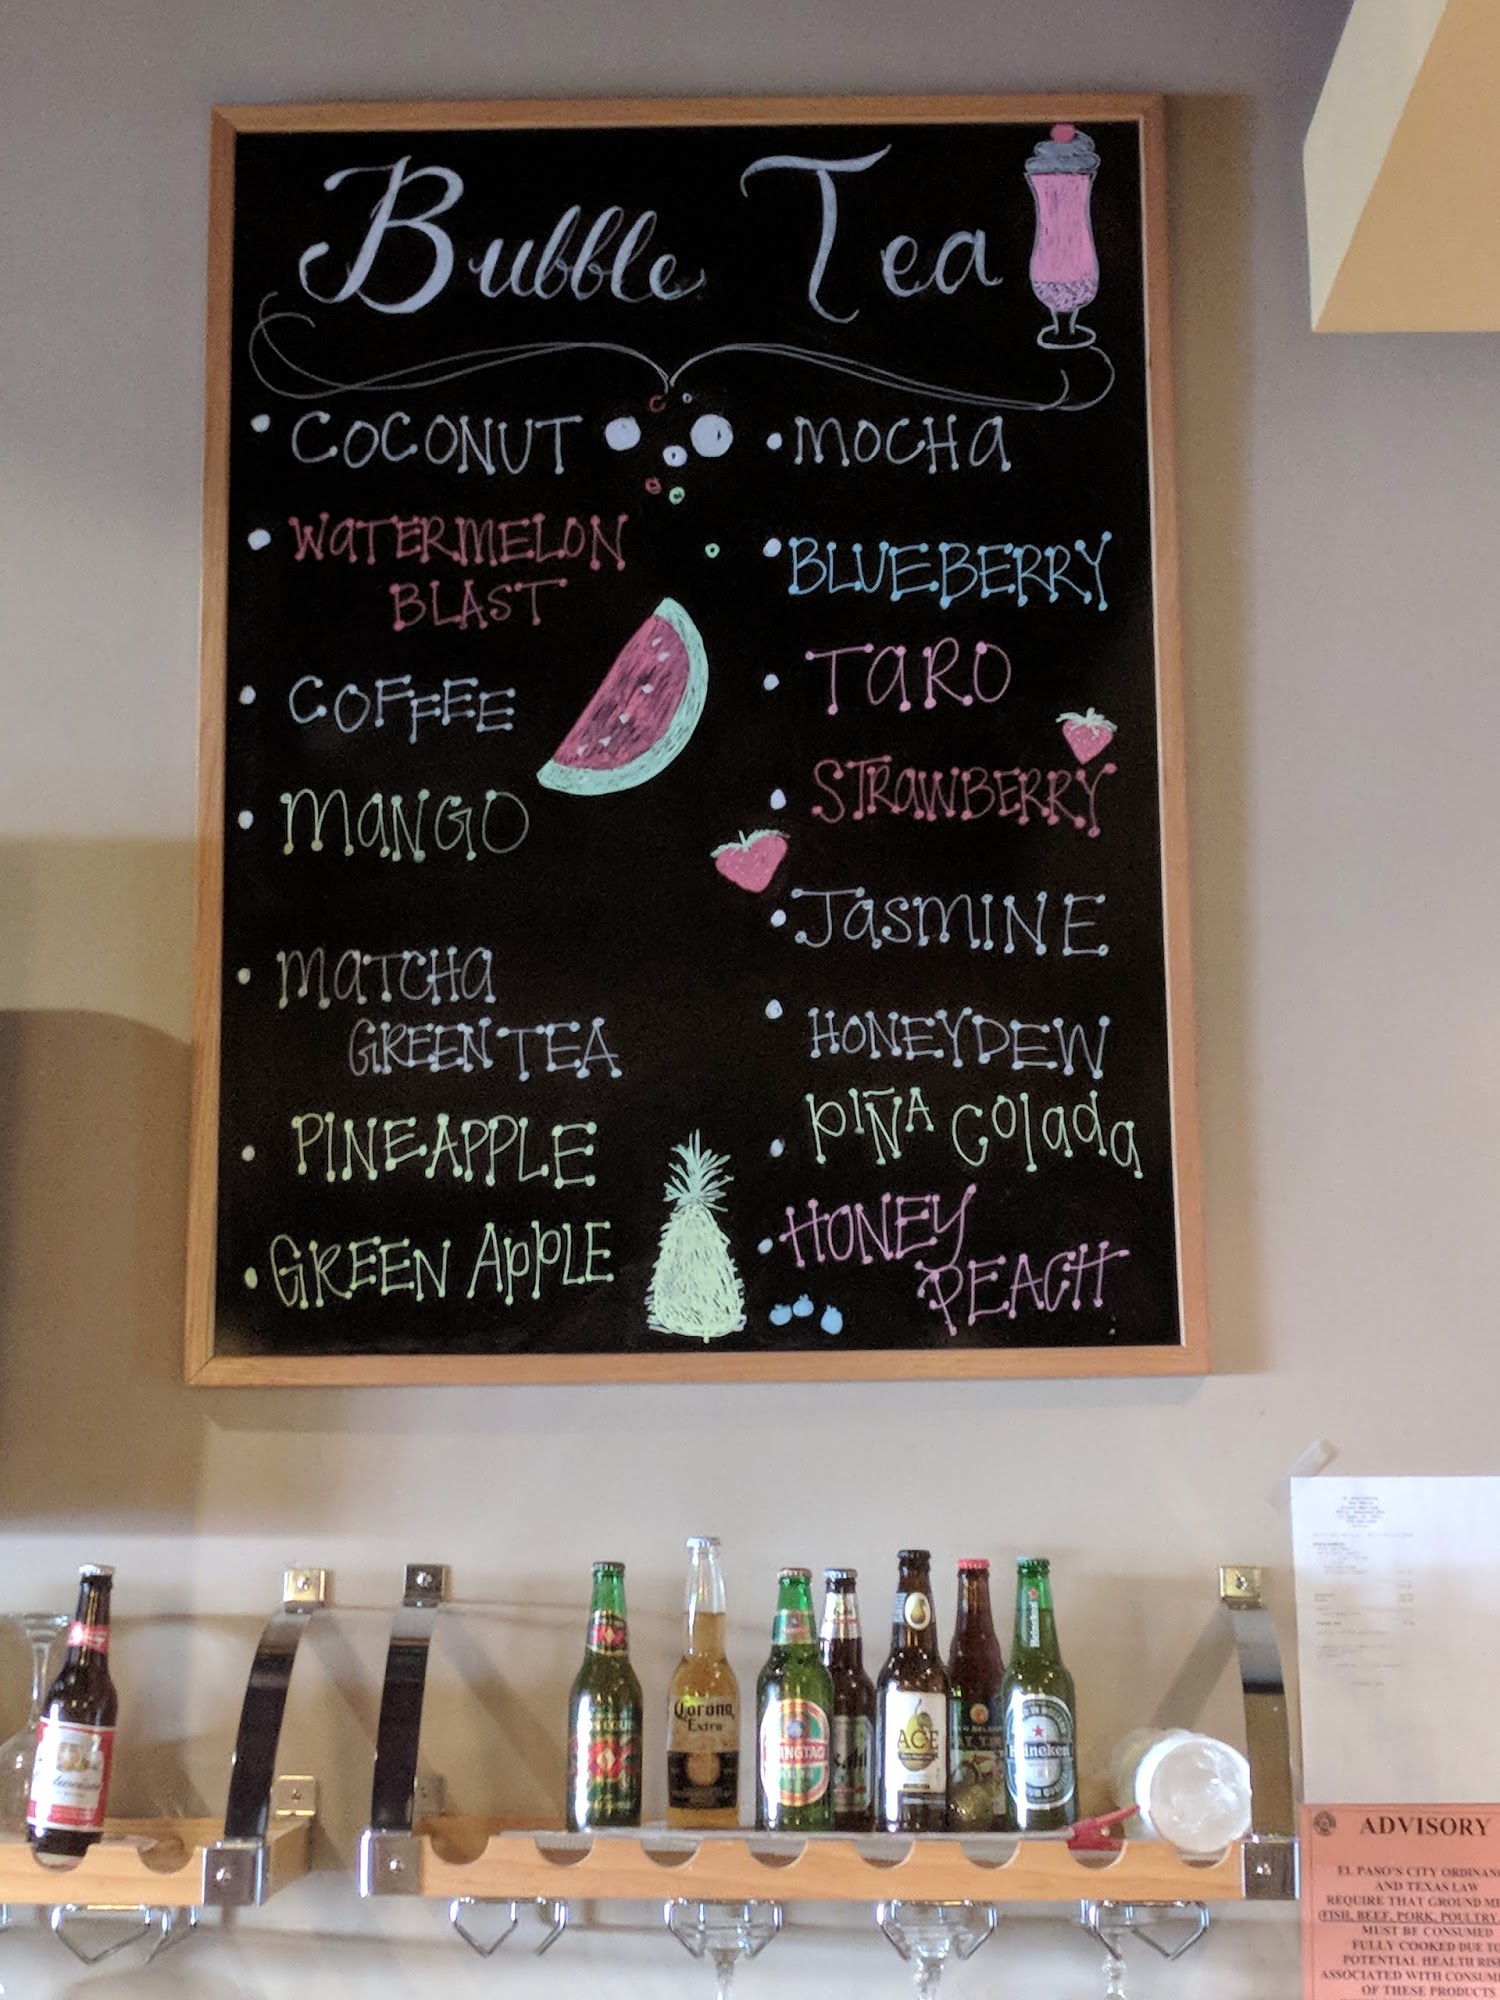 Bubble Tea
• COCONUT
• WATERMELON
BLAST
• COFFEE
• MANGO
• MATCHA
GREEN TEA
• PINEAPPLE
• GREEN APPLE
• MOCHA
• BLUEBERRY
• TARO
• STRAWBERRY
• JASMINE
• HONEYDEW
• PIÑA COLADA
• HONEY
PEACH
Corona
Extra
TSINGTAO
ACE
Heineken
Heineken
ADVISORY
EL PASO'S CITY ORDINANC
AND TEXAS LAW
REQUIRE THAT GROUND ME
(FISH, BEEF, PORK, POULTRY,
MUST BE CONSUMED
FULLY COOKED DUE TO
POTENTIAL HEALTH RISK
ASSOCIATED WITH CONSUM
OF THESE PRODUCTS